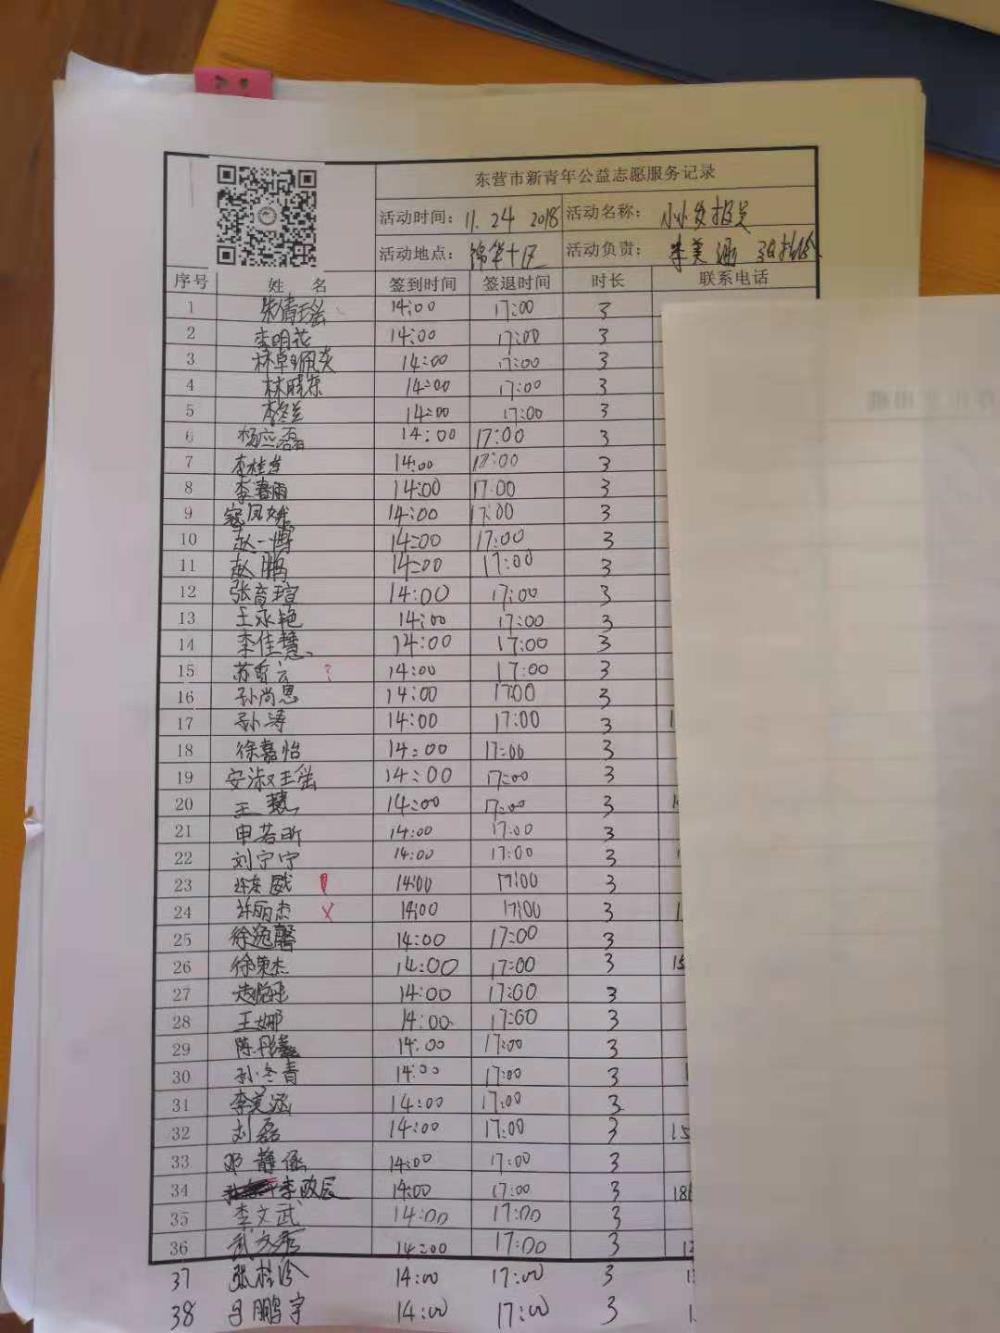 东营市新青年公益志愿服务记录
活动时间：11.24 2018 活动名称：小小发报员
活动地点：锦华十区 活动负责：李美涵 张桂玲
序号 姓名 签到时间 签退时间 时长 联系电话
1 朱倩瑶 14:00 17:00 3
2 李明花 14:00 17:00 3
3 林卓佩 14:00 17:00 3
4 林晓东 14:00 17:00 3
5 李冬兰 14:00 17:00 3
6 杨应磊 14:00 17:00 3
7 李桂 14:00 17:00 3
8 李春雨 14:00 17:00 3
9 寇凤娥 14:00 17:00 3
10 赵一博 14:00 17:00 3
11 赵鹏 14:00 17:00 3
12 张育瑄 14:00 17:00 3
13 王永艳 14:00 17:00 3
14 李佳慧 14:00 17:00 3
15 苏哲云 ? 14:00 17:00 3
16 孙尚恩 14:00 17:00 3
17 孙涛 14:00 17:00 3 1
18 徐嘉怡 14:00 17:00 3
19 安淑瑶 14:00 17:00 3
20 王慧 14:00 17:00 3
21 申若昕 14:00 17:00 3
22 刘宁宁 14:00 17:00 3
23 许东威 14:00 17:00 3
24 许丽杰 X 14:00 17:00 3 1
25 徐逸馨 14:00 17:00 3
26 徐秉杰 14:00 17:00 3 15
27 14:00 17:00 3
28 王娜 14:00 17:00 3
29 陈 14:00 17:00 3
30 孙冬青 14:00 17:00 3
31 李美涵 14:00 17:00 3
32 刘磊 14:00 17:00 3 15
33 邓静涵 14:00 17:00 3
34 李政辰 14:00 17:00 3 18
35 李文武 14:00 17:00 3
36 武秀 14:00 17:00 3 1
37 张桂玲 14:00 17:00 3 1
38 马鹏宇 14:00 17:00 3 1